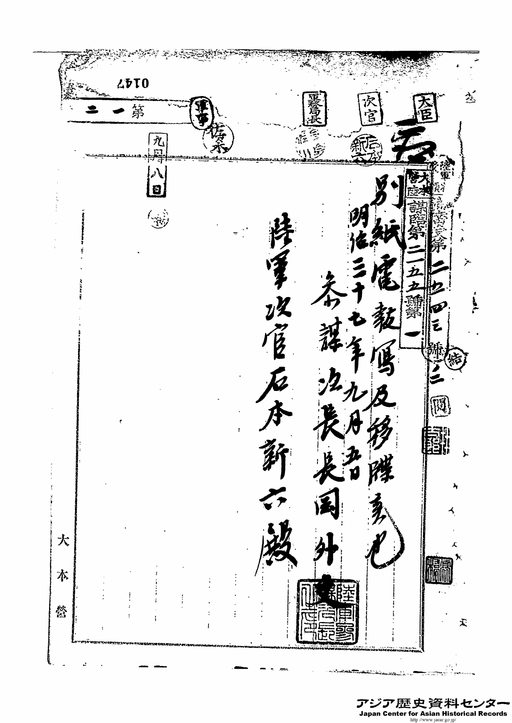 0147
第一二
軍事
大臣
次官
九月八日
謀臨第二一五五號第一
第二五四三號
結
別紙電報写及移牒候也
明治三十七年九月五日
参謀次長長岡外史
陸軍次官石本新六殿
大本營
アジア歴史資料センター
Japan Center for Asian Historical Records
http://www.jacar.go.jp/